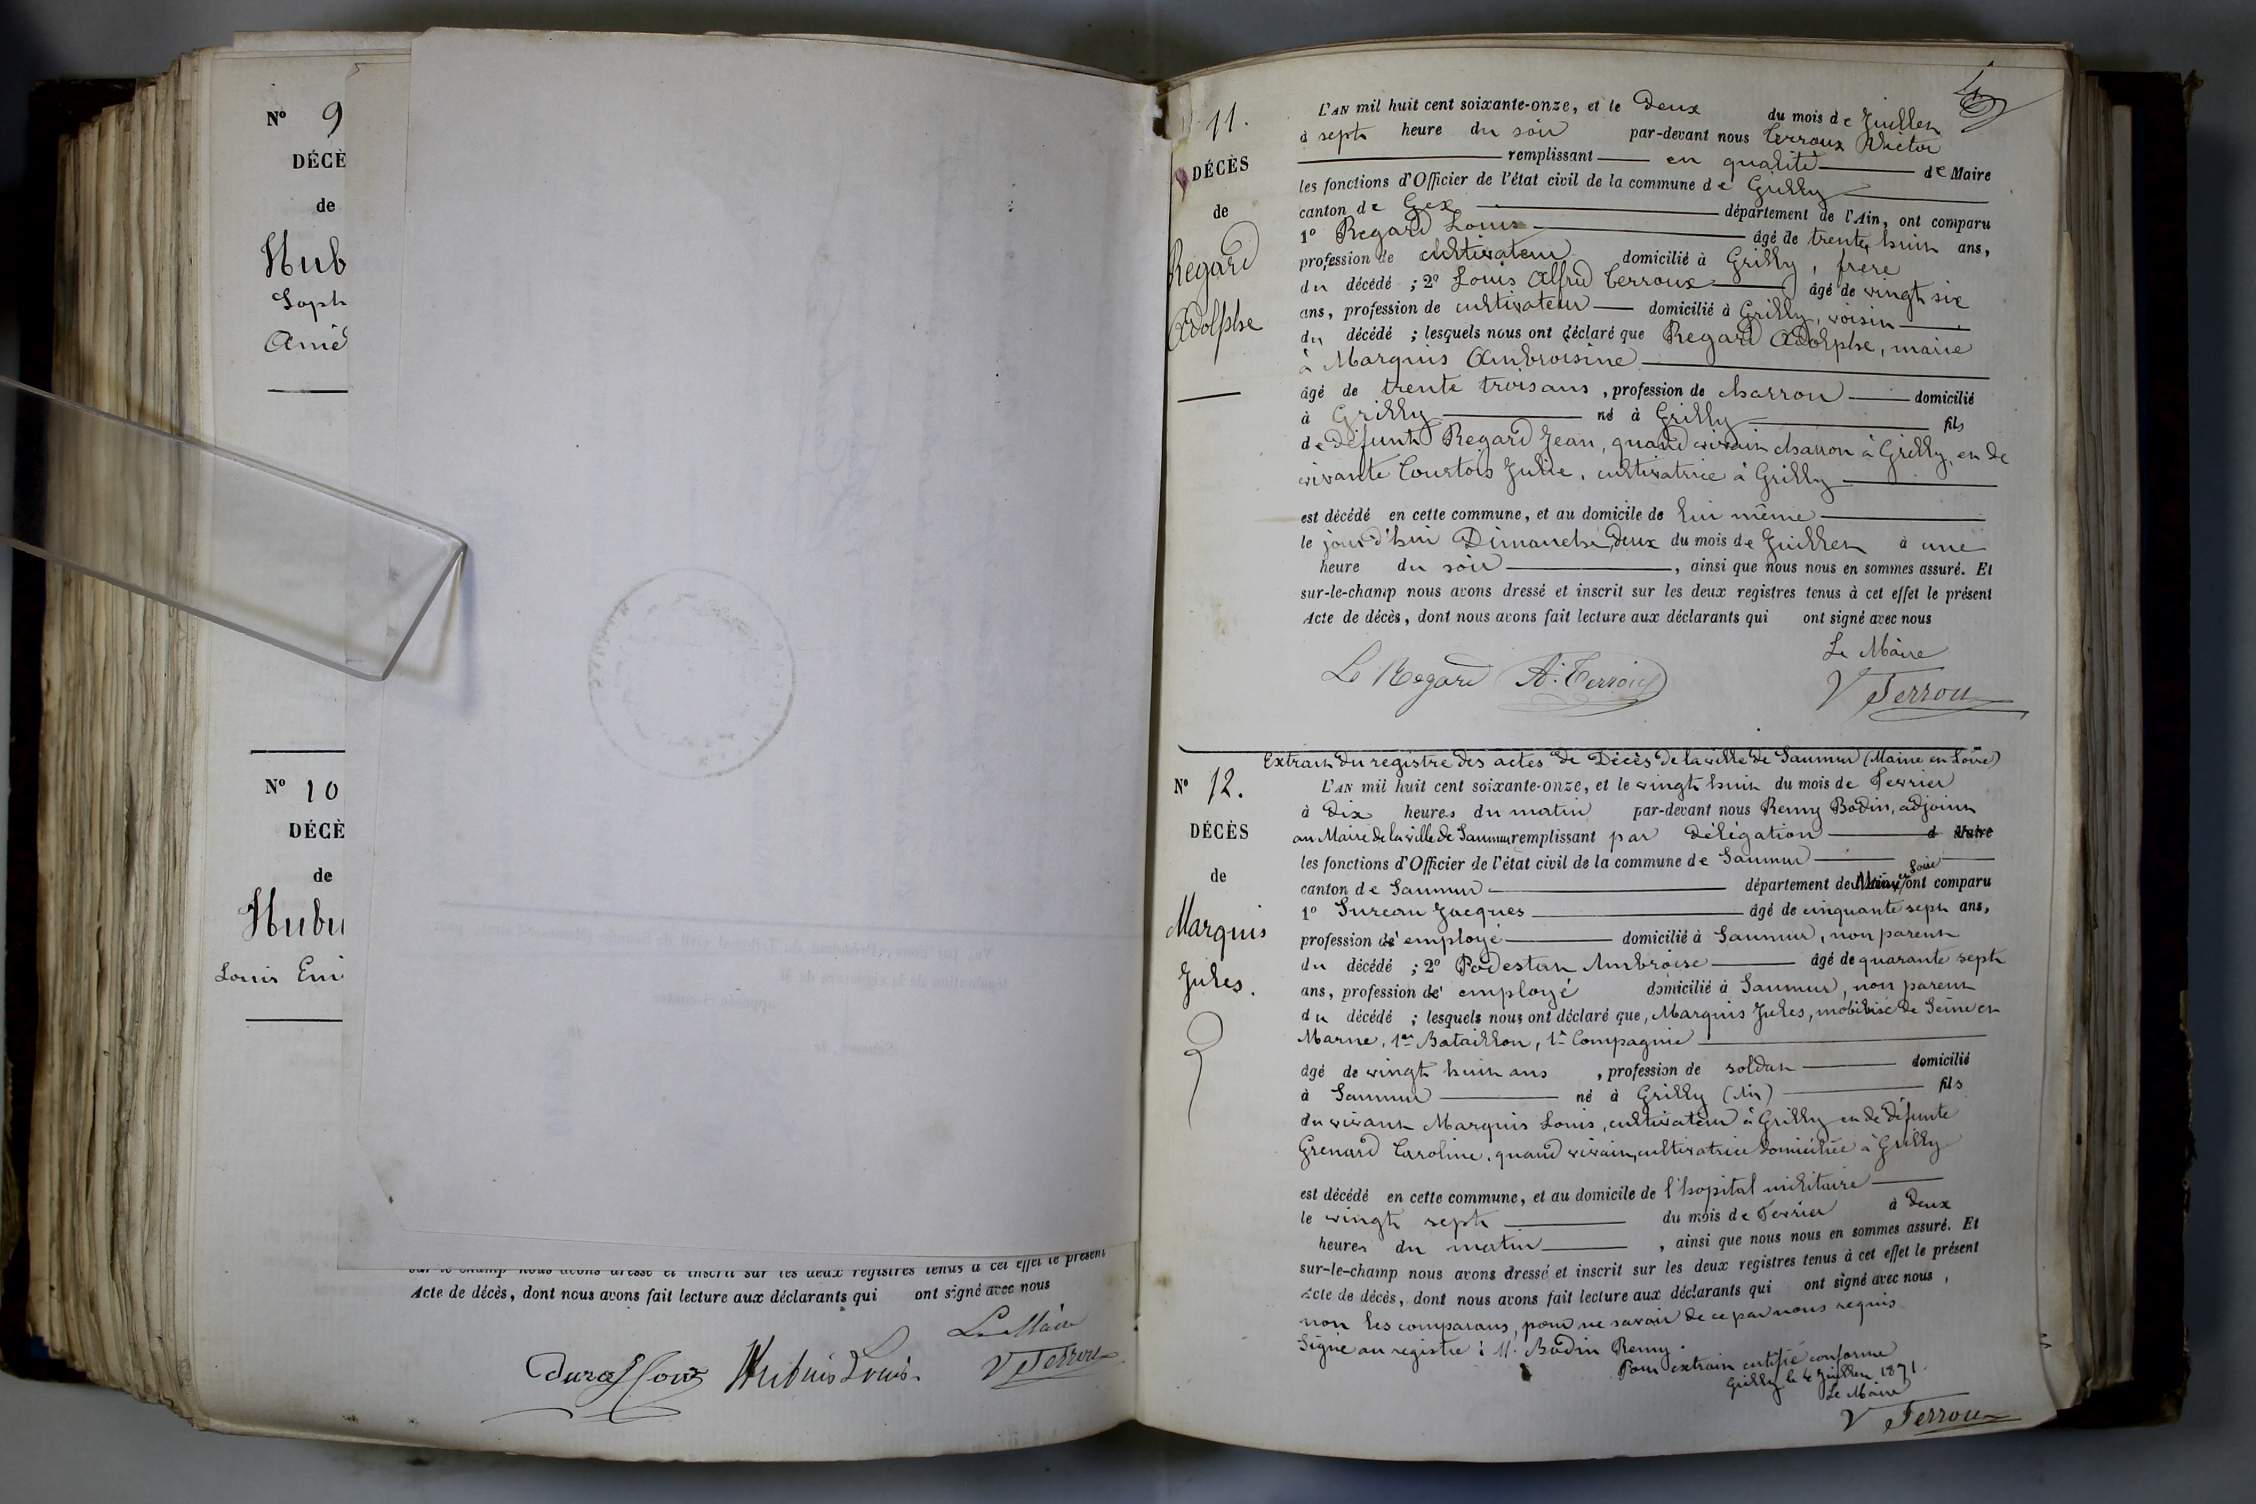 Nº 9
DÉCÈ
de
Hub
Soph
Amé
Nº 10
DÉCÈ
de
Hubu
Louis Emi
Acte de décès, dont nous avons fait lecture aux déclarants qui ont signé avec nous
Le Maire
Hubuis Louis. V Terroux
11.
DÉCÈS
de
Regard
Adolphe
L'AN mil huit cent soixante-onze, et le Deux du mois de Juillet
à sept heure du soir par-devant nous Terroux Victor
remplissant en qualité de Maire
les fonctions d'Officier de l'état civil de la commune de Grilly
canton de Gex département de l'Ain, ont comparu
1º Regard Louis âgé de trente huit ans,
profession de cultivateur domicilié à Grilly, frère
du décédé ; 2º Louis Alfred Terroux âgé de vingt six
ans, profession de cultivateur domicilié à Grilly, voisin
du décédé ; lesquels nous ont déclaré que Regard Adolphe, marié
à Marquis Ambroisine
âgé de trente trois ans, profession de charron domicilié
à Grilly né à Grilly fils
de défunt Regard Jean, quand vivait charron à Grilly, et de
vivante Courtois Julie, cultivatrice à Grilly
est décédé en cette commune, et au domicile de lui même
le jourd'hui Dimanche deux du mois de Juillet à une
heure du soir, ainsi que nous nous en sommes assuré. Et
sur-le-champ nous avons dressé et inscrit sur les deux registres tenus à cet effet le présent
Acte de décès, dont nous avons fait lecture aux déclarants qui ont signé avec nous
Le Maire
Ls Regard A. Terroux V Terroux
Extrait du registre des actes de Décès de la ville de Saumur (Maine et Loire)
Nº 12.
DÉCÈS
de
Marquis
Jules.
L'AN mil huit cent soixante-onze, et le vingt huit du mois de Fevrier
à Dix heures du matin par-devant nous Remy Bodin, adjoint
au Maire de la ville de Saumur remplissant par délégation d Maire
les fonctions d'Officier de l'état civil de la commune de Saumur
canton de Saumur département de Maine et Loire ont comparu
1º Sureau Jacques âgé de cinquante sept ans,
profession d' employé domicilié à Saumur, non parent
du décédé ; 2º Podestat Ambroise âgé de quarante sept
ans, profession d' employé domicilié à Saumur, non parent
du décédé ; lesquels nous ont déclaré que, Marquis Jules, mobilisé de Seine et
Marne, 1er Bataillon, 1e Compagnie
âgé de vingt huit ans, profession de soldat domicilié
à Saumur né à Grilly (Ain) fils
du vivant Marquis Louis, cultivateur à Grilly et de défunte
Grenard Caroline, quand vivait, cultivatrice domiciliée à Grilly
est décédé en cette commune, et au domicile de l'hopital militaire
le vingt sept du mois de Fevrier à deux
heures du matin, ainsi que nous nous en sommes assuré. Et
sur-le-champ nous avons dressé et inscrit sur les deux registres tenus à cet effet le présent
Acte de décès, dont nous avons fait lecture aux déclarants qui ont signé avec nous,
non les comparans, pour ne savoir de ce par nous requis
Signé au registre : M. Bodin Remy.
Pour extrait certifié conforme
Grilly le 4 Juillet 1871.
Le Maire
V Terroux